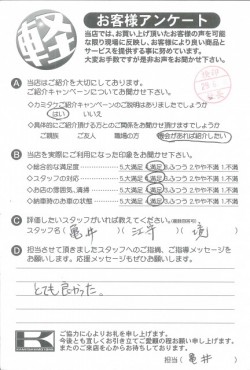 軽
お客様アンケート
当店では、お買い上げ頂いたお客様の声を可能
な限り現場に反映し、お客様により良い商品と
サービスを提供する事に努めています。
大変お手数ですが是非お声をお聞かせ下さい。
A 当店はご紹介を大切にしております。
ご紹介キャンペーンについてお聞かせ下さい。
◇カミタケご紹介キャンペーンのご説明はありましたでしょうか
はい いいえ
◇具体的にご紹介頂ける方とのご関係をお聞かせ頂けますでしょうか
ご親族 ご友人 職場の方 機会があれば紹介したい
B 当店を実際にご利用になった印象をお聞かせ下さい。
◇総合的な満足度 5.大満足 4.満足 3.ふつう 2.やや不満 1.不満
◇スタッフの対応 5.大満足 4.満足 3.ふつう 2.やや不満 1.不満
◇お店の雰囲気、清掃 5.大満足 4.満足 3.ふつう 2.やや不満 1.不満
◇納車時のお車の状態 5.大満足 4.満足 3.ふつう 2.やや不満 1.不満
C 評価したいスタッフがいれば教えてください。
スタッフ名( 亀井 )( 江守 )( 境 )
D 担当させて頂きましたスタッフへのご指摘、ご指導メッセージを
お願いします。応援メッセージもぜひお願いします。
とても良かった。
K
ご協力に心よりお礼を申し上げます。
今後とも宜しくお引き立てご愛顧の程お願い申し上げます。
またのご来店を心からお待ちしております。
担当( 亀井 )